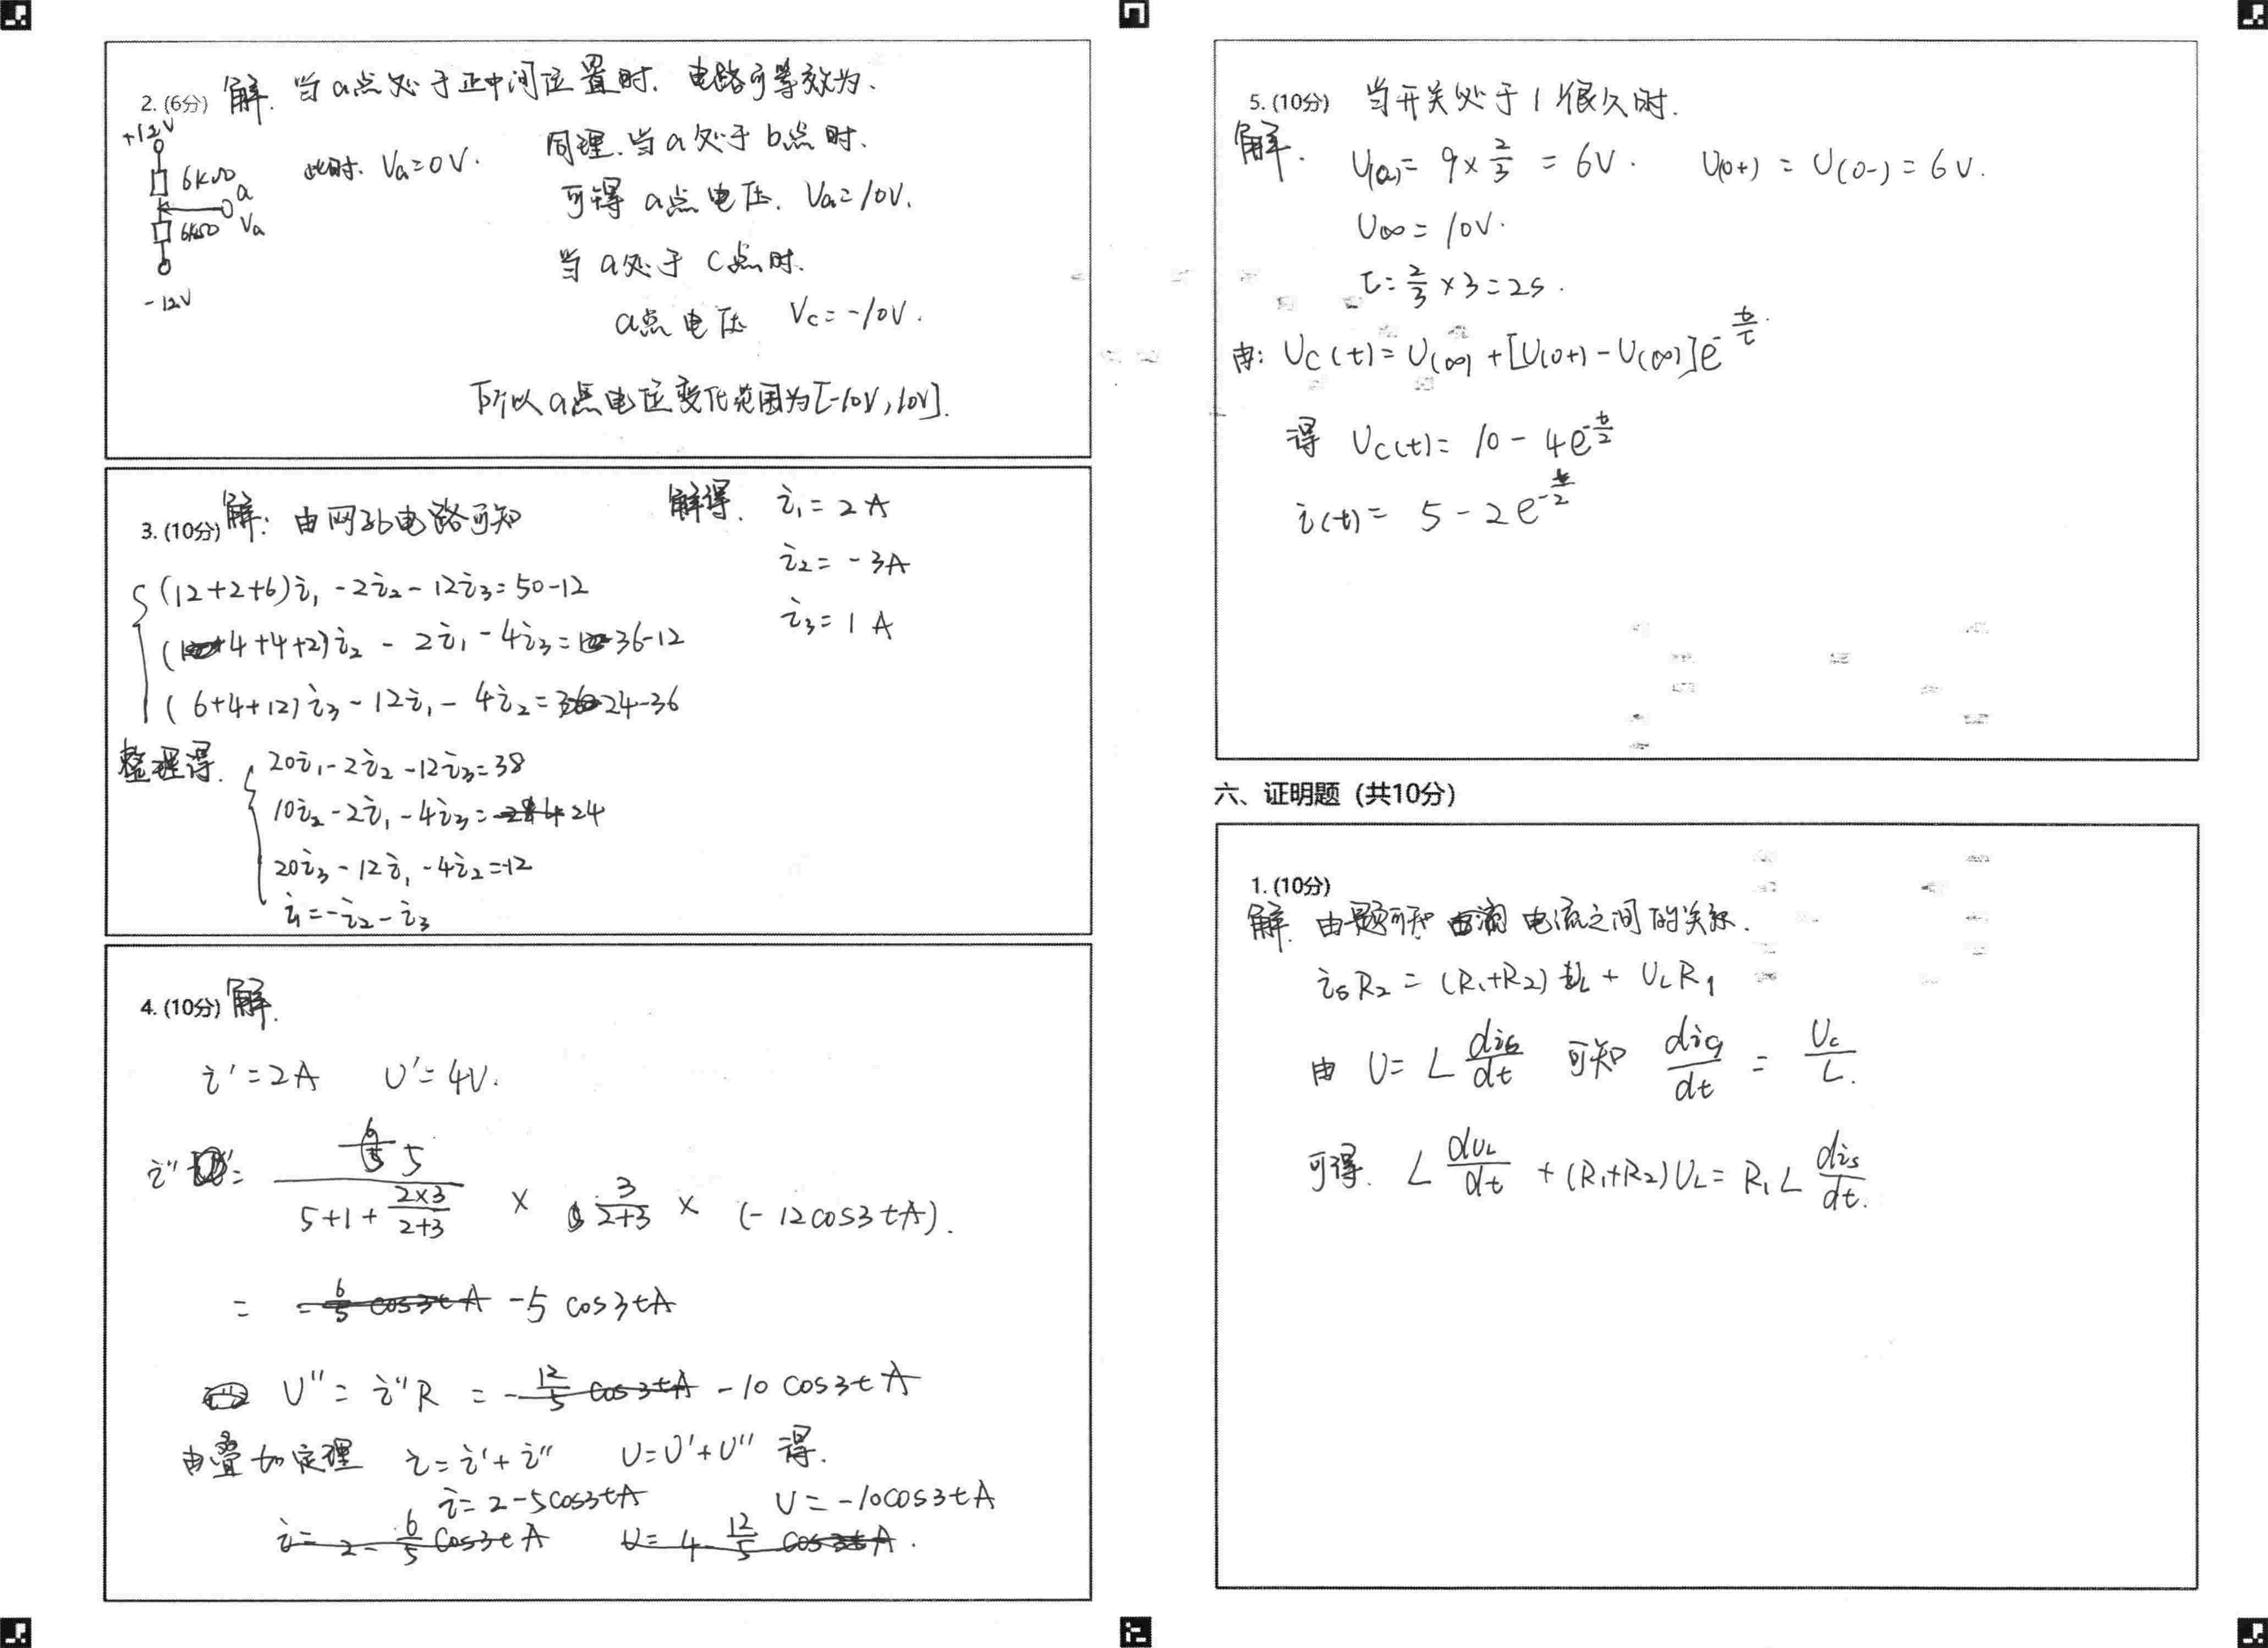 2. (6分) 解. 当a点处于正中间位置时. 电路可等效为.
+12V
6KΩ
a
6KΩ Va
-12V
此时. Va=0V.
同理.当a处于b点时.
可得 a点电压. Va=10V.
当a处于c点时.
a点电压 Vc=-10V.
所以a点电位变化范围为[-10V,10V].
3. (10分) 解: 由网孔电路可知
(12+2+6)i₁-2i₂-12i₃=50-12
(4+4+2)i₂-2i₁-4i₃=36-12
(6+4+12)i₃-12i₁-4i₂=24-36
整理得.
20i₁-2i₂-12i₃=38
10i₂-2i₁-4i₃=24
20i₃-12i₁-4i₂=-12
i₁=-i₂-i₃
解得. i₁=2A
i₂=-3A
i₃=1A
4. (10分) 解.
i'=2A U'=4V.
i''= 5/(5+1+(2×3)/(2+3)) × 3/(2+3) × (-12cos3tA).
= -5cos3tA
U''=i''R = -10cos3tA
由叠加定理 i=i'+i'' U=U'+U'' 得.
i=2-5cos3tA U=-10cos3tA
5. (10分) 当开关处于1很久时.
解. U(0-)=9×2/3=6V. U(0+)=U(0-)=6V.
U∞=10V.
τ=2/3×3=2S.
由: Uc(t)=U(∞)+[U(0+)-U(∞)]e^(-t/τ).
得 Uc(t)=10-4e^(-t/2)
i(t)=5-2e^(-t/2)
六、证明题 (共10分)
1. (10分)
解. 由题可知 电流之间的关系.
isR₂=(R₁+R₂)iL+ULR₁
由 U=L dis/dt 可知 di/dt=Uc/L.
可得. L dUL/dt+(R₁+R₂)UL=R₁L dis/dt.